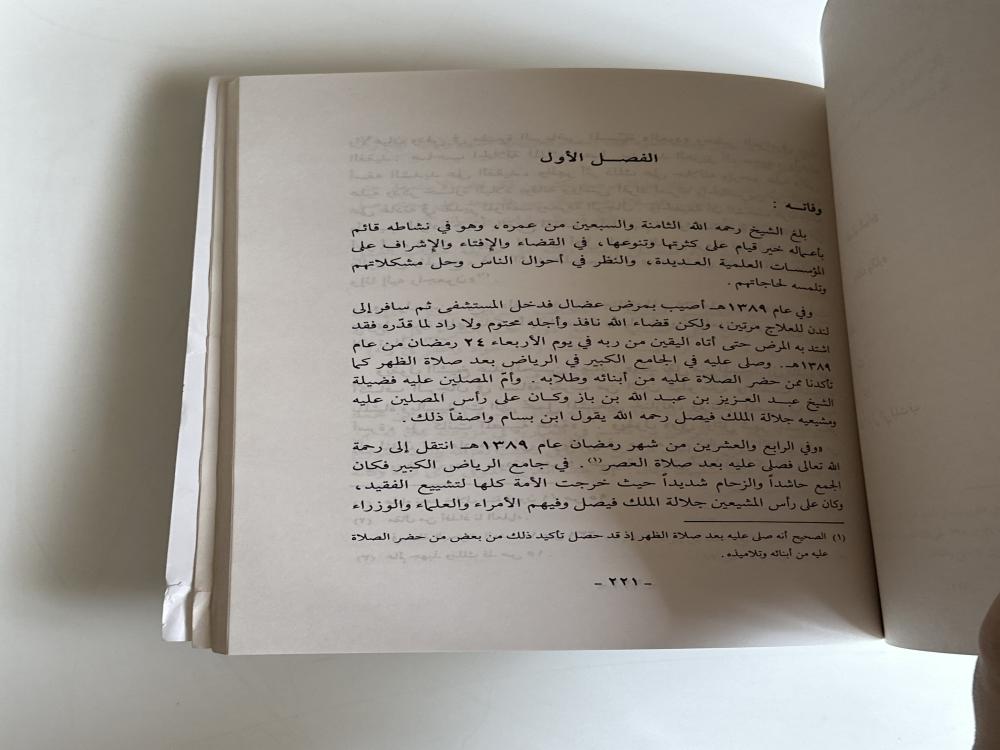 الفصــل الأول
وفاتـــه :
بلغ الشيخ رحمه الله الثامنة والسبعين من عمره، وهو في نشاطه قائم
بأعماله خير قيام على كثرتها وتنوعها، في القضاء والإفتاء والإشراف على
المؤسسات العلمية العـديدة، والنظر في أحوال الناس وحل مشكلاتهم
وتلمسه لحاجاتهم .
وفي عام ١٣٨٩هـ أصيب بمرض عضال فدخل المستشفى ثم سافر إلى
لندن للعلاج مرتين، ولكن قضاء الله نافذ وأجله محتوم ولا راد لما قدّره فقد
اشتد به المرض حتى أتاه اليقين من ربه في يوم الأربعاء ٢٤ رمضان من عام
١٣٨٩هـ. وصلى عليه في الجامع الكبير في الرياض بعد صلاة الظهر كما
تأكدنا ممن حضر الصلاة عليه من أبنائه وطلابه . وأمّ المصلين عليه فضيلة
الشيخ عبـد العـزيز بن عبـد الله بن باز وكـان على رأس المصلين عليه
ومشيعيه جلالة الملك فيصل رحمه الله يقول ابن بسام واصفاً ذلك .
«وفي الرابع والعشرين من شهر رمضان عام ١٣٨٩هـ انتقل إلى رحمة
الله تعالى فصلى عليه بعد صلاة العصر(١) . في جامع الرياض الكبير فكان
الجمع حاشداً والزحام شديداً حيث خرجت الأمة كلها لتشييع الفقيد،
وكان على رأس المشيعين جلالة الملك فيصل وفيهم الأمراء والعلماء والوزراء
(١) الصحيح أنه صلى عليه بعد صلاة الظهر إذ قد حصل تأكيد ذلك من بعض من حضر الصلاة
عليه من أبنائه وتلاميذه .
- ٢٢١ -